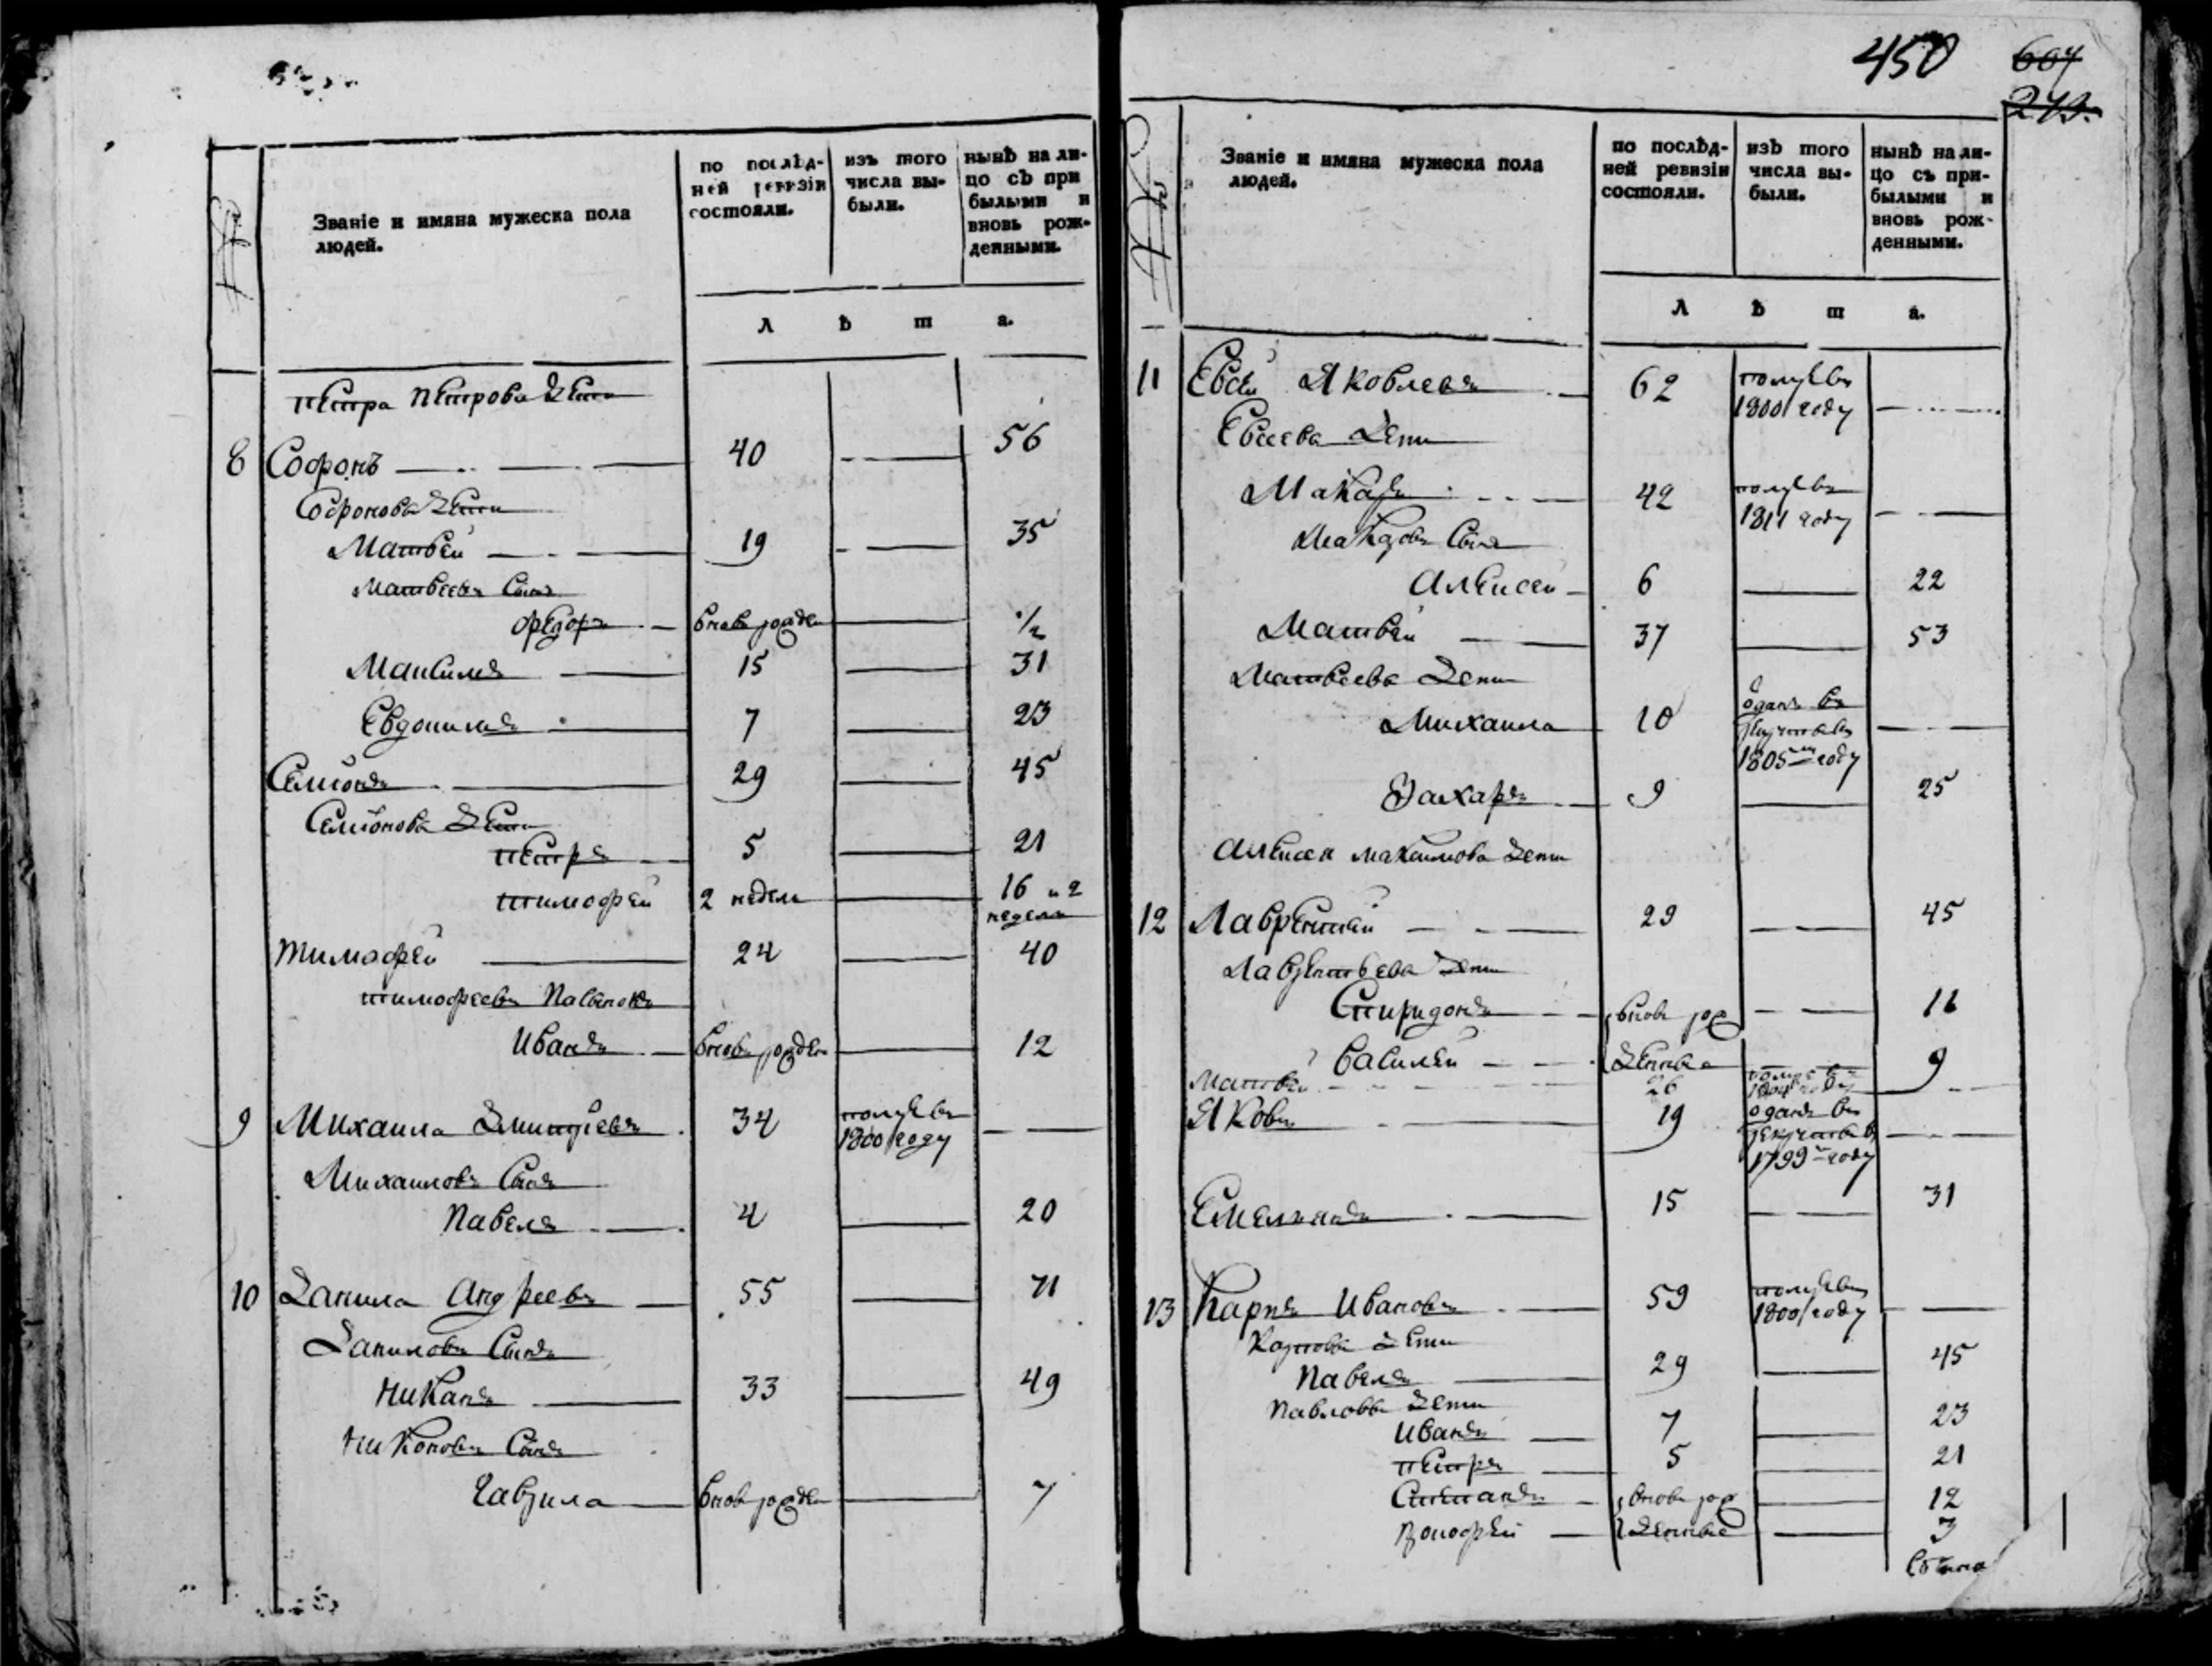 450
607
243.
№
Званіе и имяна мужеска пола
людей.
по послѣд-
ней ревизіи
состояли.
изъ того
числа вы-
были.
нынѣ на ли-
цо съ при
былыми и
вновь рож-
денными.
л ѣ т а.
Петра Петрова дети
8 Софронъ 40 56
Софронова дети
Матвей 19 35
Матвеевъ сынъ
Федоръ вновь рожден 1/2
Максимъ 15 31
Евдокимъ 7 23
Семионъ 29 45
Семионова дети
Петръ 5 21
Тимофей 2 недели 16 и 2
недели
Тимофей 24 40
Тимофеевъ пасынокъ
Иванъ вновь рожден 12
9 Михаила Дмитриевъ 34 помре въ
1800 году
Михаиловъ сынъ
Павелъ 4 20
10 Данила Андреевъ 55 71
Даниловъ сынъ
Никанъ 33 49
Никоновъ сынъ
Гаврила вновь рожден 7
№
Званіе и имяна мужеска пола
людей.
по послѣд-
ней ревизіи
состояли.
изъ того
числа вы-
были.
нынѣ на ли-
цо съ при-
былыми и
вновь рож-
денными.
л ѣ т а.
11 Евсей Яковлевъ 62 помре въ
1800 году
Евсеева дети
Макаръ 42 помре въ
1811 году
Макаровъ сынъ
Алексей 6 22
Матвей 37 53
Матвеева дети
Михаила 10 отданъ въ
рекруты въ
1805 году
Захаръ 9 25
Алексея Максимова дети
12 Лаврентей 29 45
Лаврентьева дети
Спиридонъ вновь рож 11
Василей денные 9
Матвей 26 помре въ
1804 году
Яковъ 19 отданъ въ
рекруты в
1799 году
Емельянъ 15 31
13 Карпъ Ивановъ 59 помре въ
1800 году
Карпова дети
Павелъ 29 45
Павловы дети
Иванъ 7 23
Петръ 5 21
Степанъ вновь рож 12
денные 3